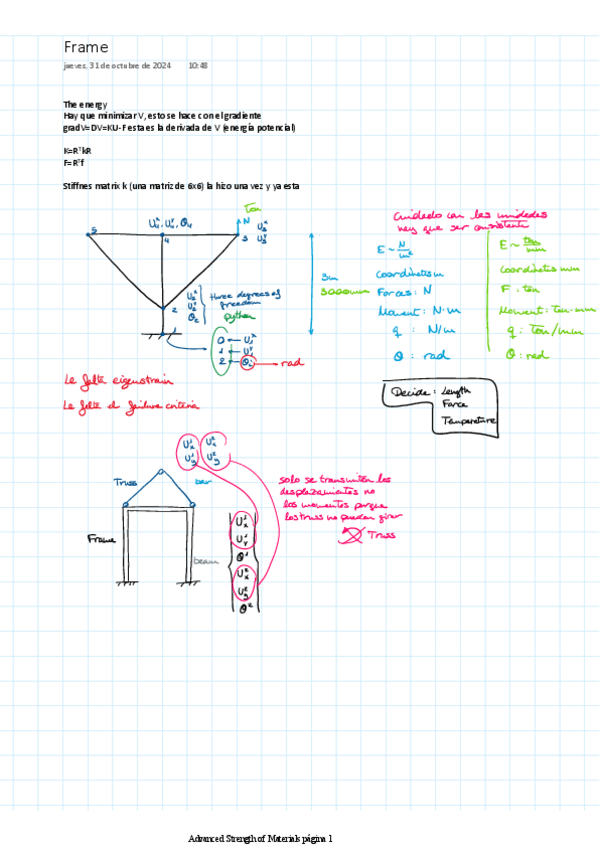 Frame
jueves, 31 de octubre de 2024 10:48
The energy
Hay que minimizar V, esto se hace con el gradiente
gradV=DV=KU-F esta es la derivada de V (energía potencial)
K=RᵀkR
F=Rᵀf
Stiffnes matrix k (una matriz de 6x6) la hizo una vez y ya esta
Ton
N
5
4
3
2
three degrees of
freedom
python
0
1
2
rad
3m
3000mm
Cuidado con las unidades
hay que ser consistente
E ~ N/m²
Coordinates m
Forces: N
Moment: N·m
q: N/m
θ: rad
E ~ ton/mm
Coordinates mm
F: ton
Moment: ton·mm
q: Ton/mm
θ: rad
Le falta eigenstrain
Le falta el failure criteria
Decide: Length
Force
Temperature
Truss
bar
Frame
beam
solo se transmiten los
desplazamientos no
los momentos porque
los truss no pueden girar
Truss
Advanced Strength of Materials página 1